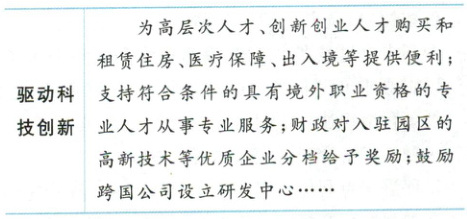 驱动科
技创新
为高层次人才、创新创业人才购买和
租赁住房、医疗保障、出入境等提供便利；
支持符合条件的具有境外职业资格的专
业人才从事专业服务；财政对入驻园区的
高新技术等优质企业分档给予奖励；鼓励
跨国公司设立研发中心……